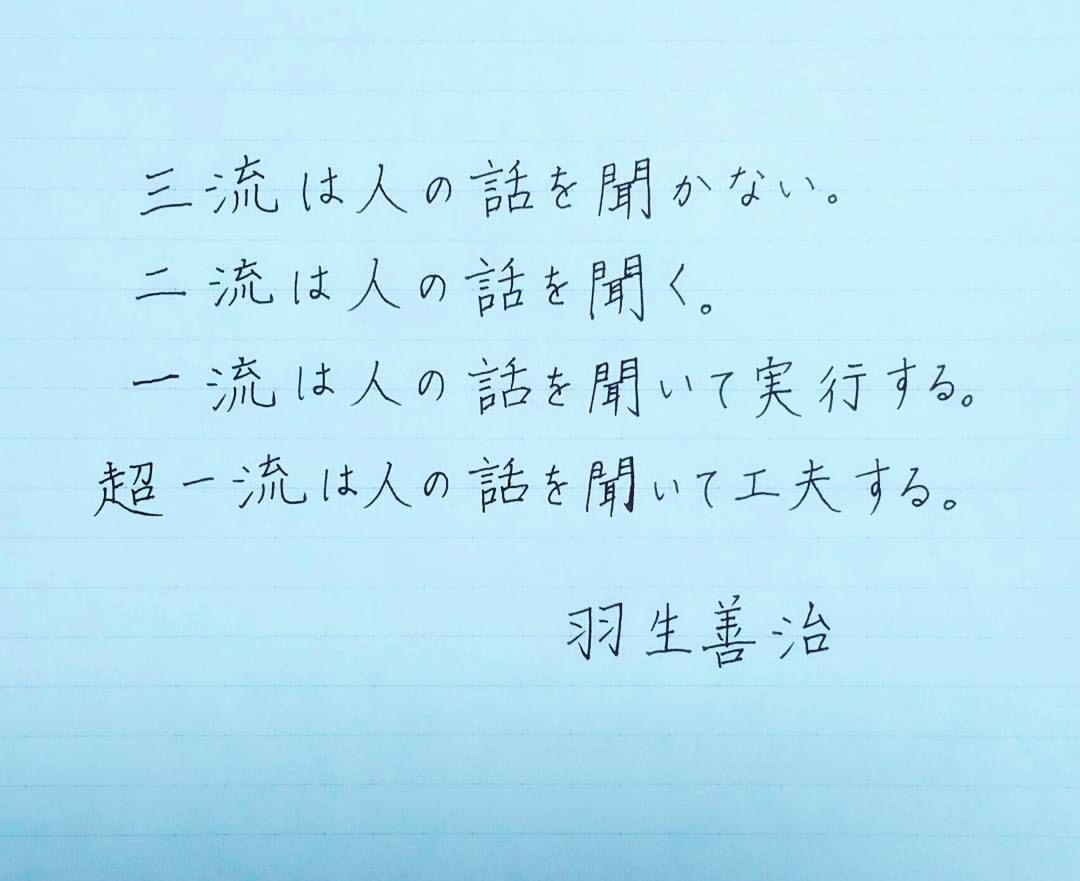 三流は人の話を聞かない。
二流は人の話を聞く。
一流は人の話を聞いて実行する。
超一流は人の話を聞いて工夫する。
羽生善治